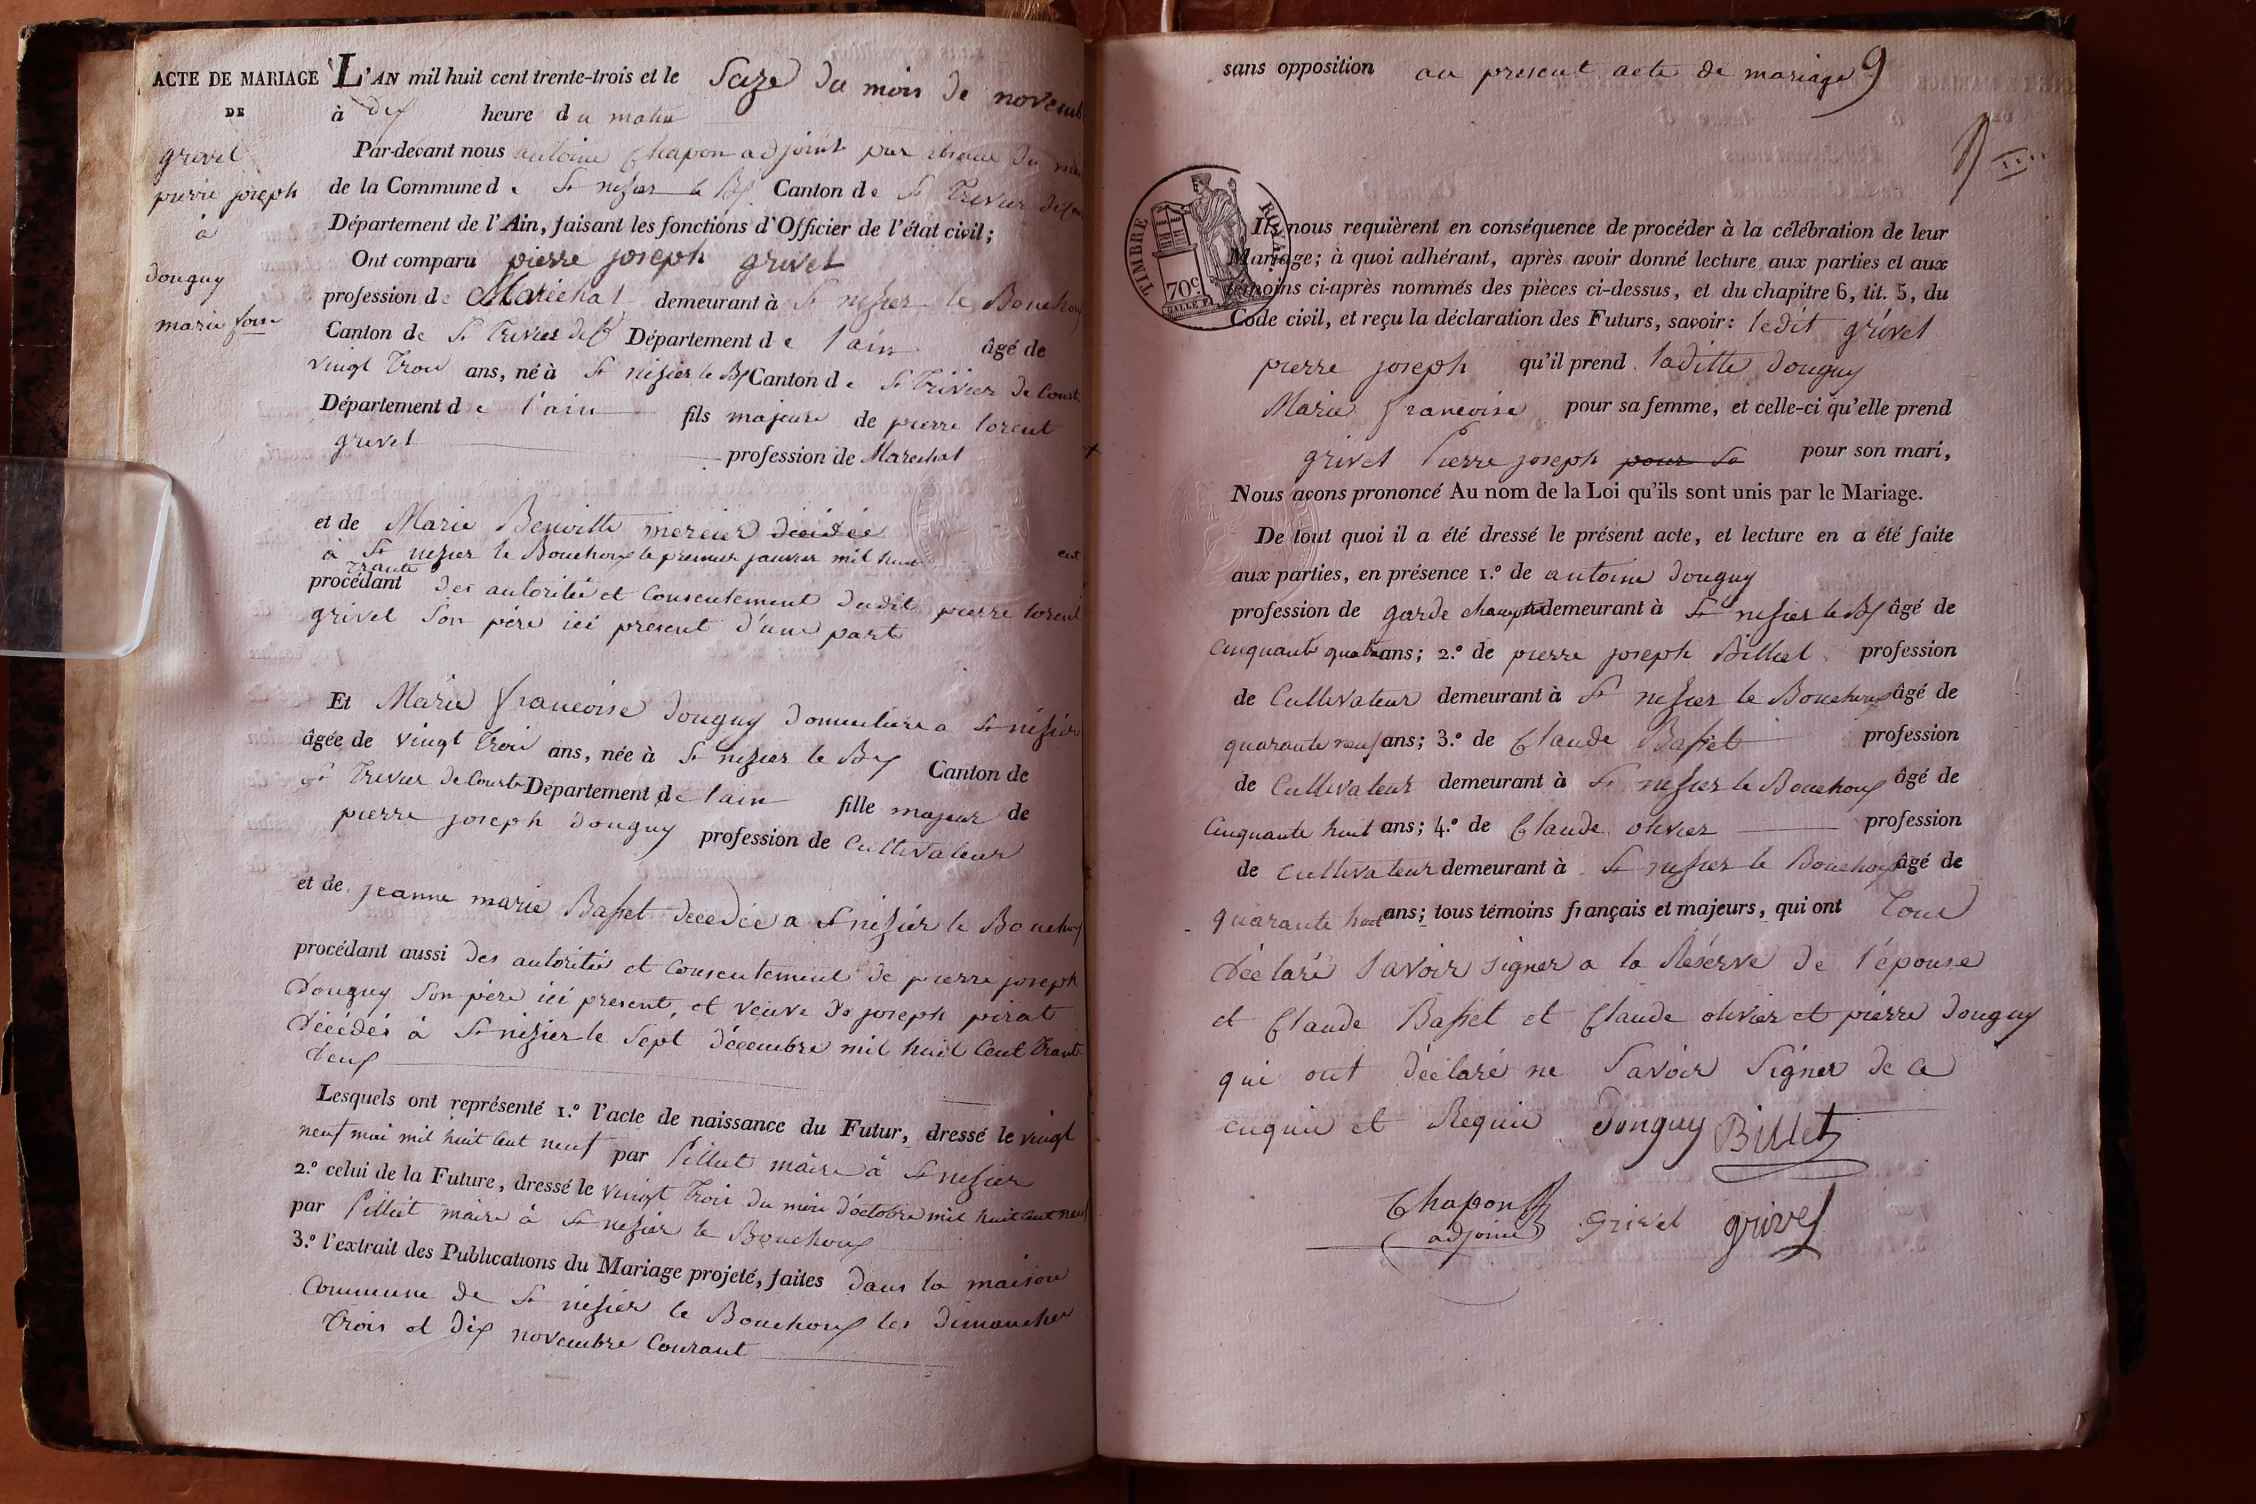 ACTE DE MARIAGE
DE
grivel
pierre joseph
à
donguy
marie foise
L'AN mil huit cent trente-trois et le Saze du mois de novemb
à dix heure du matin
Par-devant nous antoine Chapon adjoint par du
de la Commune de St nesier le Bx Canton de St Trevier
Département de l'Ain, faisant les fonctions d'Officier de l'état civil;
Ont comparu pierre joseph grivel
profession de Maréchal demeurant à St nesier le Bouchoux
Canton de St Trivier de Ct Département de l'ain âgé de
vingt Trois ans, né à St nisier le Bx Canton de St Trivier de Court
Département de l'ain fils majeure de pierre lorent
grivel profession de Marechal
et de Marie Benoitte mercier décédée
à St nesier le Bouchoux le premier janvier mil huit cent
trante
procédant des autorités et Consentement dudit pierre lorent
grivel Son père ici present d'une part
Et Marie francoise donguy domiciliere a St nisier
âgée de vingt Trois ans, née à St nezier le Bx Canton de
St Trevier de Courte Département de l'ain fille majeur de
pierre joseph donguy profession de Cultivateur
et de jeanne marie Basset decedée a St nisier le Bouchoux
procédant aussi des autorités et consentement de pierre joseph
donguy Son père ici present, et veuve de joseph pirat
décédés à St nisier le Sept décembre mil huit Cent trante
deux
Lesquels ont représenté 1.º l'acte de naissance du Futur, dressé le vingt
neuf mai mil huit cent neuf par Pillut maire à St nesier
2.º celui de la Future, dressé le vingt Trois du mois d'octobre mil huit cent neuf
par Pillut maire à St nesier le Bouchoux
3.º l'extrait des Publications du Mariage projeté, faites dans la maison
Commune de St nesier le Bouchoux les dimanches
Trois et dix novembre Courant
sans opposition au present acte de mariage 9
TIMBRE ROYAL
70c.
Ils nous requièrent en conséquence de procéder à la célébration de leur
Mariage; à quoi adhérant, après avoir donné lecture aux parties et aux
témoins ci-après nommés des pièces ci-dessus, et du chapitre 6, tit. 5, du
Code civil, et reçu la déclaration des Futurs, savoir: ledit grivel
pierre joseph qu'il prend laditte donguy
Marie francoise pour sa femme, et celle-ci qu'elle prend
grivel Pierre joseph pour Sa pour son mari,
Nous avons prononcé Au nom de la Loi qu'ils sont unis par le Mariage.
De tout quoi il a été dressé le présent acte, et lecture en a été faite
aux parties, en présence 1.º de antoine donguy
profession de garde champetre demeurant à St nesier le Bx âgé de
Cinquante quatre ans; 2.º de pierre joseph Billiet profession
de Cultivateur demeurant à St nesier le Bouchoux âgé de
quarante neuf ans; 3.º de Claude Basset profession
de Cultivateur demeurant à St nesier le Bouchoux âgé de
Cinquante huit ans; 4.º de Claude olivier profession
de cultivateur demeurant à St nesier le Bouchoux âgé de
quarante huit ans; tous témoins français et majeurs, qui ont Tous
déclaré Savoir signer a la Réserve de l'épouse
et Claude Basset et Claude olivier et pierre donguy
qui ont déclaré ne Savoir Signer de ce
enquis et Requis Donguy Billet
Chapon
adjoint Grivel grivel